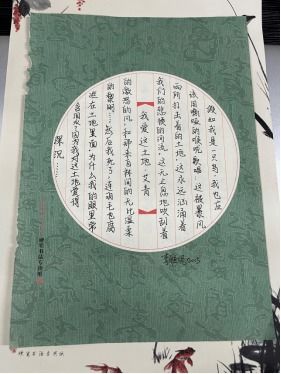 假如我是一只鸟,我也应
该用嘶哑的喉咙歌唱:这被暴风
雨所打击着的土地,这永远汹涌着
我们的悲愤的河流,这无止息地吹刮着
【我爱这土地·艾青】
的激怒的风,和那来自林间的无比温柔
的黎明……然后我死了,连羽毛也腐
烂在土地里面。为什么我的眼里常
含泪水?因为我对这土地爱得
深沉……
硬笔书法专用纸